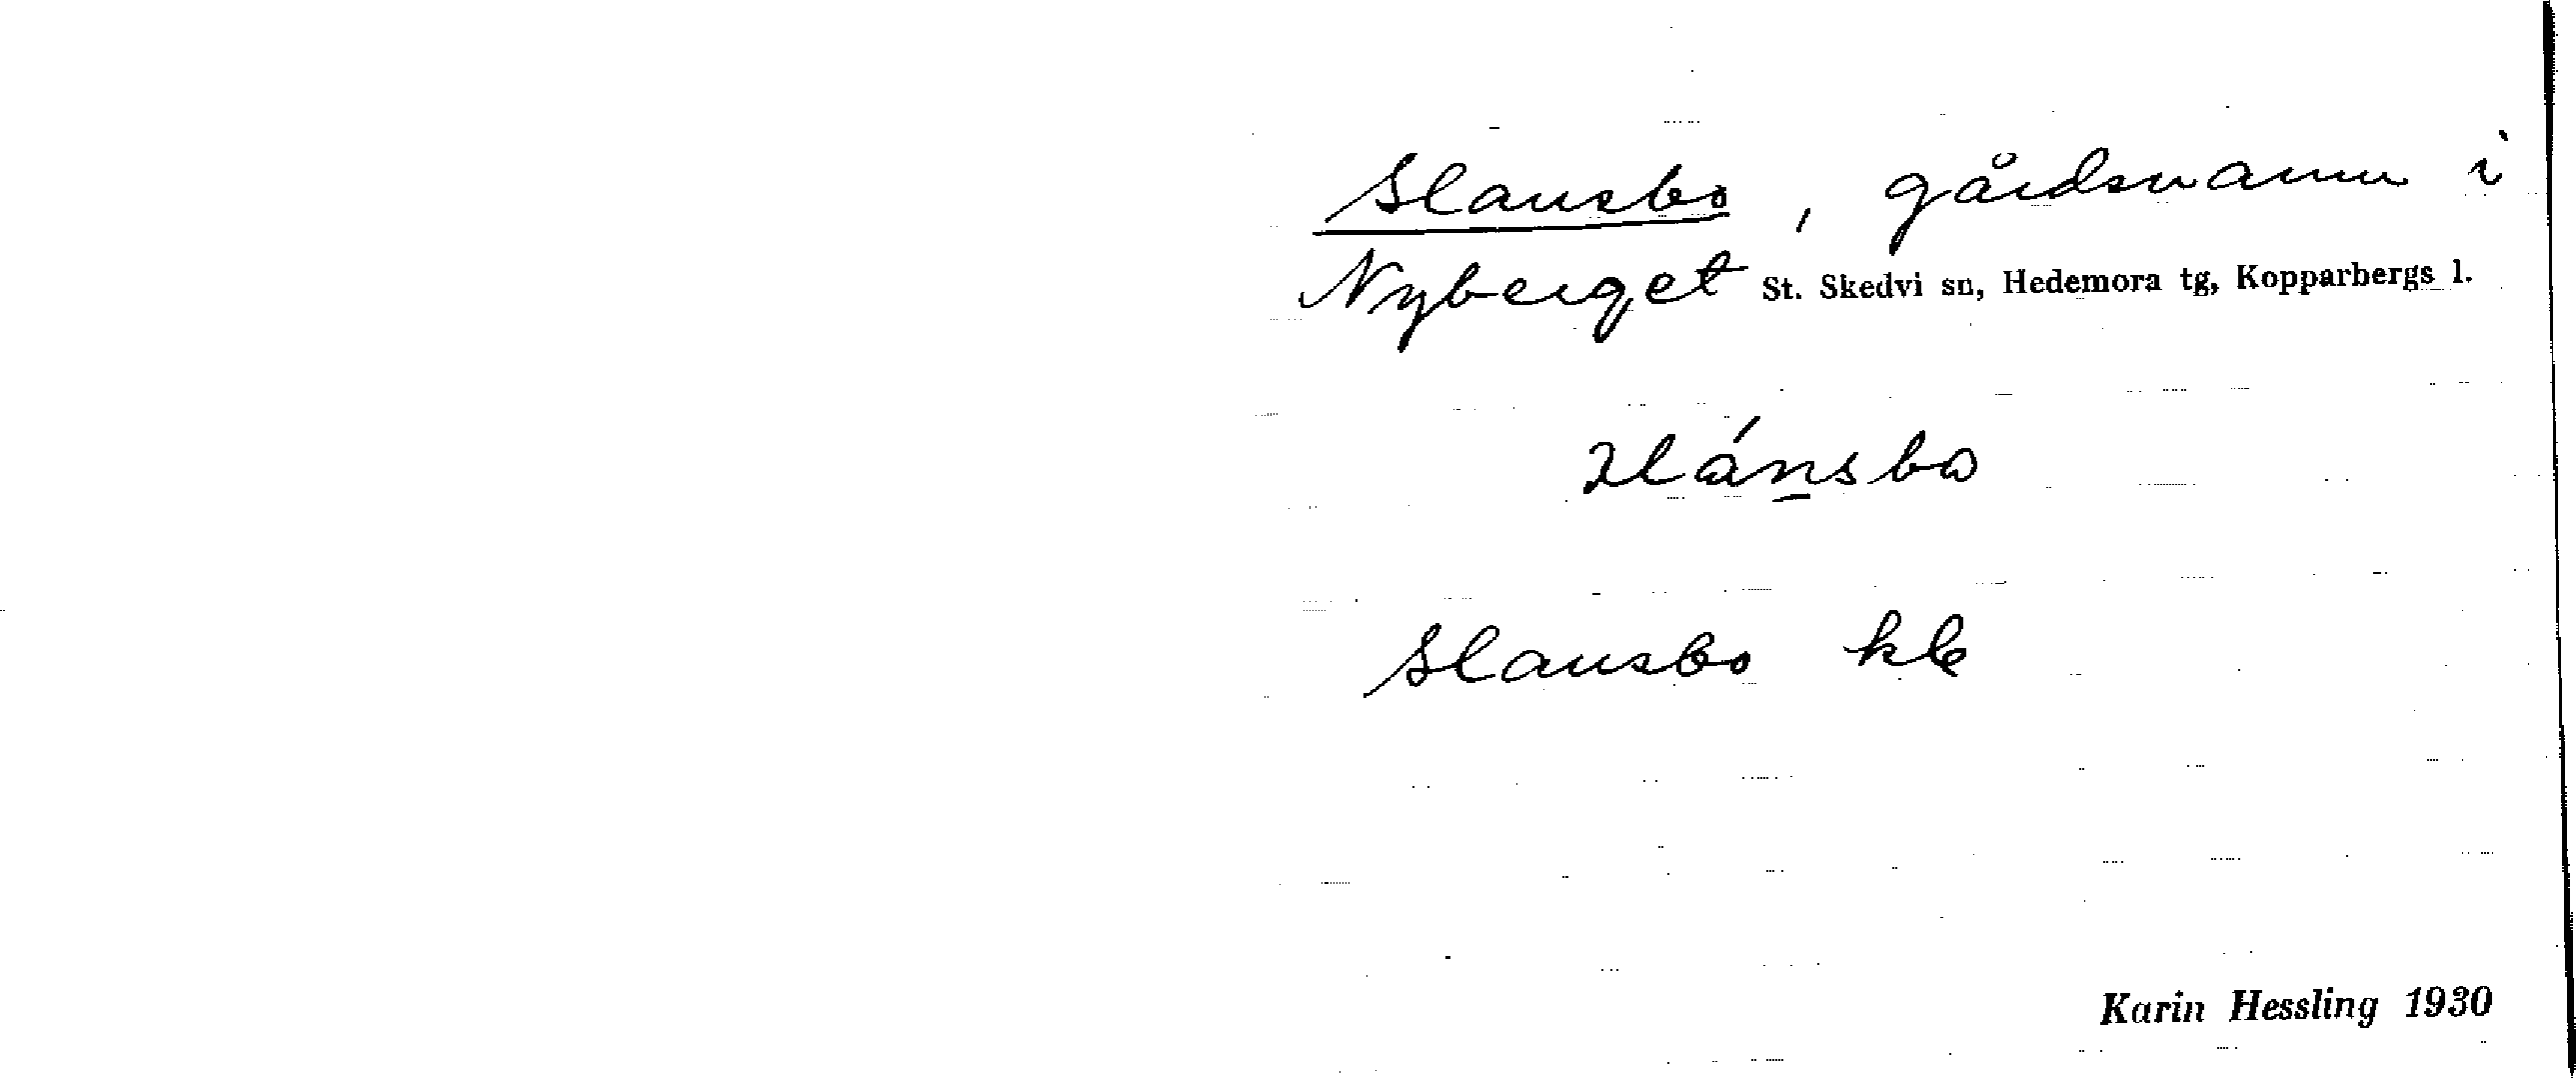 Slansbo, gårdsnamn i
Nyberget St. Skedvi sn, Hedemora tg, Kopparbergs l.
slánsbo
Slansbo kle
Karin Hessling 1930